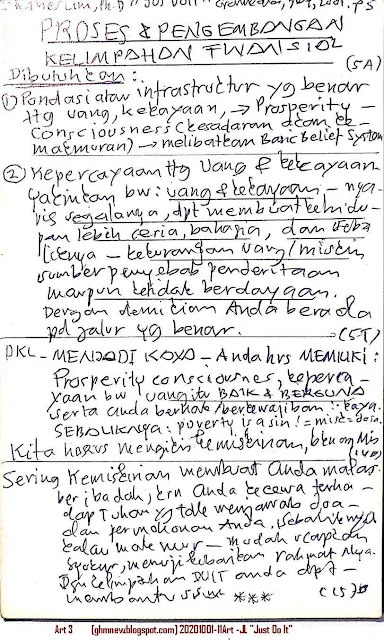 PROSES & PENGEMBANGAN
KELIMPAHAN FINANSIAL
(5A)
Dibutuhkan:
① Pondasi atau infrastructur yg benar
ttg uang, kekayaan, → Prosperity -
Consciousness (kesadaran akan ke-
makmuran) → melibatkan Basic Belief System
② Kepercayaan ttg Uang & kekayaan
Yakinkan bw: uang & kekayaan - nya-
ris segalanya, dpt membuat kehidu-
pan lebih ceria, bahagia, dan seba
liknya - kekurangan uang/miskin
sumber penyebab penderitaan
maupun ketidak berdayaan.
Dengan demikian Anda berada
pd jalur yg benar.
(5T)
PKL - MENJADI KAYA - Anda hrs MEMILIKI:
Prosperity consciousnes, keperca-
yaan bw uang itu BAIK & BERGUNA
serta anda berhak/berkewajiban kaya.
SEBALIKNYA: poverty is a sin! = misk = dosa.
Kita harus mengikis kemiskinan,
Sering Kemiskinan membuat Anda malas
beribadah, krn Anda kecewa terha-
dap Tuhan yg tdk menjawab doa-
dan permohonan Anda, sebaliknya
kalau makmur - mudah ucapkan
syukur, memuji kebaikan rahmat Nya.
Dgn kelimpahan DUIT anda dpt -
membantu ***
Art 3 [ghmnev.blogspot.com] 20201001-11Art -JL "Just Do It"